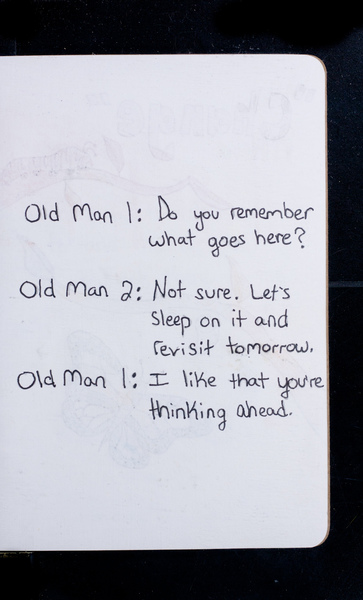 Old Man 1: Do you remember
what goes here?
Old Man 2: Not sure. Let's
sleep on it and
revisit tomorrow.
Old Man 1: I like that you're
thinking ahead.
"Change"